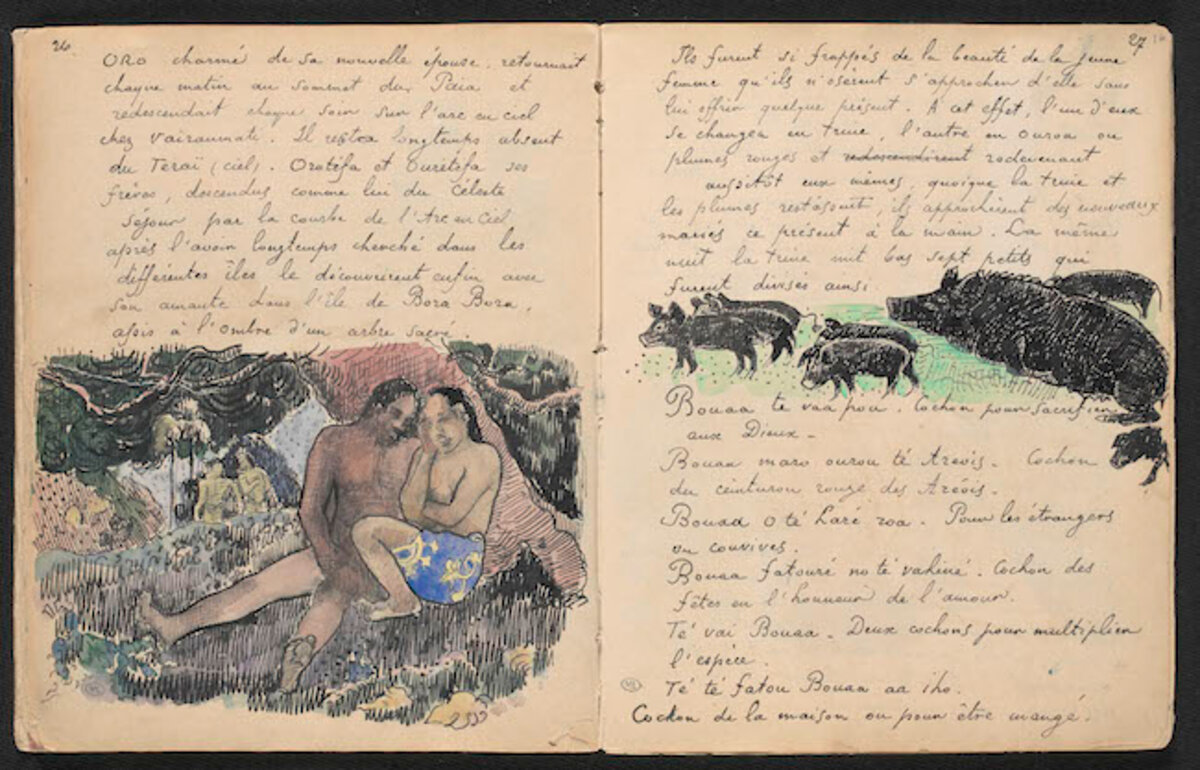 26
ORO charmé de sa nouvelle épouse, retournait
chaque matin au sommet du Païa et
redescendait chaque soir sur l'arc en ciel
chez Vairaumati. Il resta longtemps absent
du Teraï (ciel). Orotéfa et Ourétéfa ses
frères, descendus comme lui du Céleste
Séjour par la courbe de l'Arc en Ciel
après l'avoir longtemps cherché dans les
différentes îles le découvrirent enfin avec
son amante dans l'île de Bora Bora,
assis à l'ombre d'un arbre sacré.
27
Ils furent si frappés de la beauté de la jeune
femme qu'ils n'osèrent s'approcher d'elle sans
lui offrir quelque présent. A cet effet, l'un d'eux
se changea en truie, l'autre en ouroa ou
plumes rouges et redescendirent redevenant
aussitôt eux mêmes, quoique la truie et
les plumes restassent, ils approchèrent des nouveaux
mariés ce présent à la main. La même
nuit la truie mit bas sept petits qui
furent divisés ainsi.
Bouaa te vaa pou. Cochon pour sacrifier
aux Dieux -
Bouaa maro ourou té Areoïs - Cochon
du ceinturon rouge des Aréois.
Bouaa o té haré roa. Pour les étrangers
ou convives.
Bouaa fatouré no té vahiné. Cochon des
fêtes en l'honneur de l'amour.
Té vai Bouaa - Deux cochons pour multiplier
l'espèce.
Té té fatou Bouaa aa iho.
Cochon de la maison ou pour être mangé.